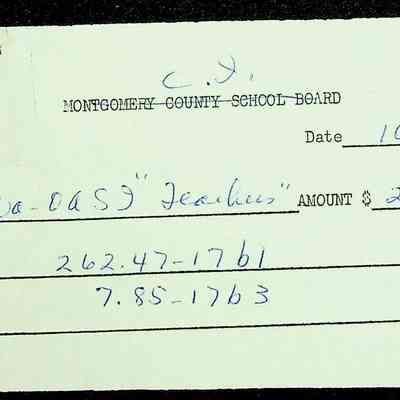 C.I.
MONTGOMERY COUNTY SCHOOL BOARD
Date 10
Va-OASI "Teachers" AMOUNT $ 2
262.47-17b1
7.85-17b3